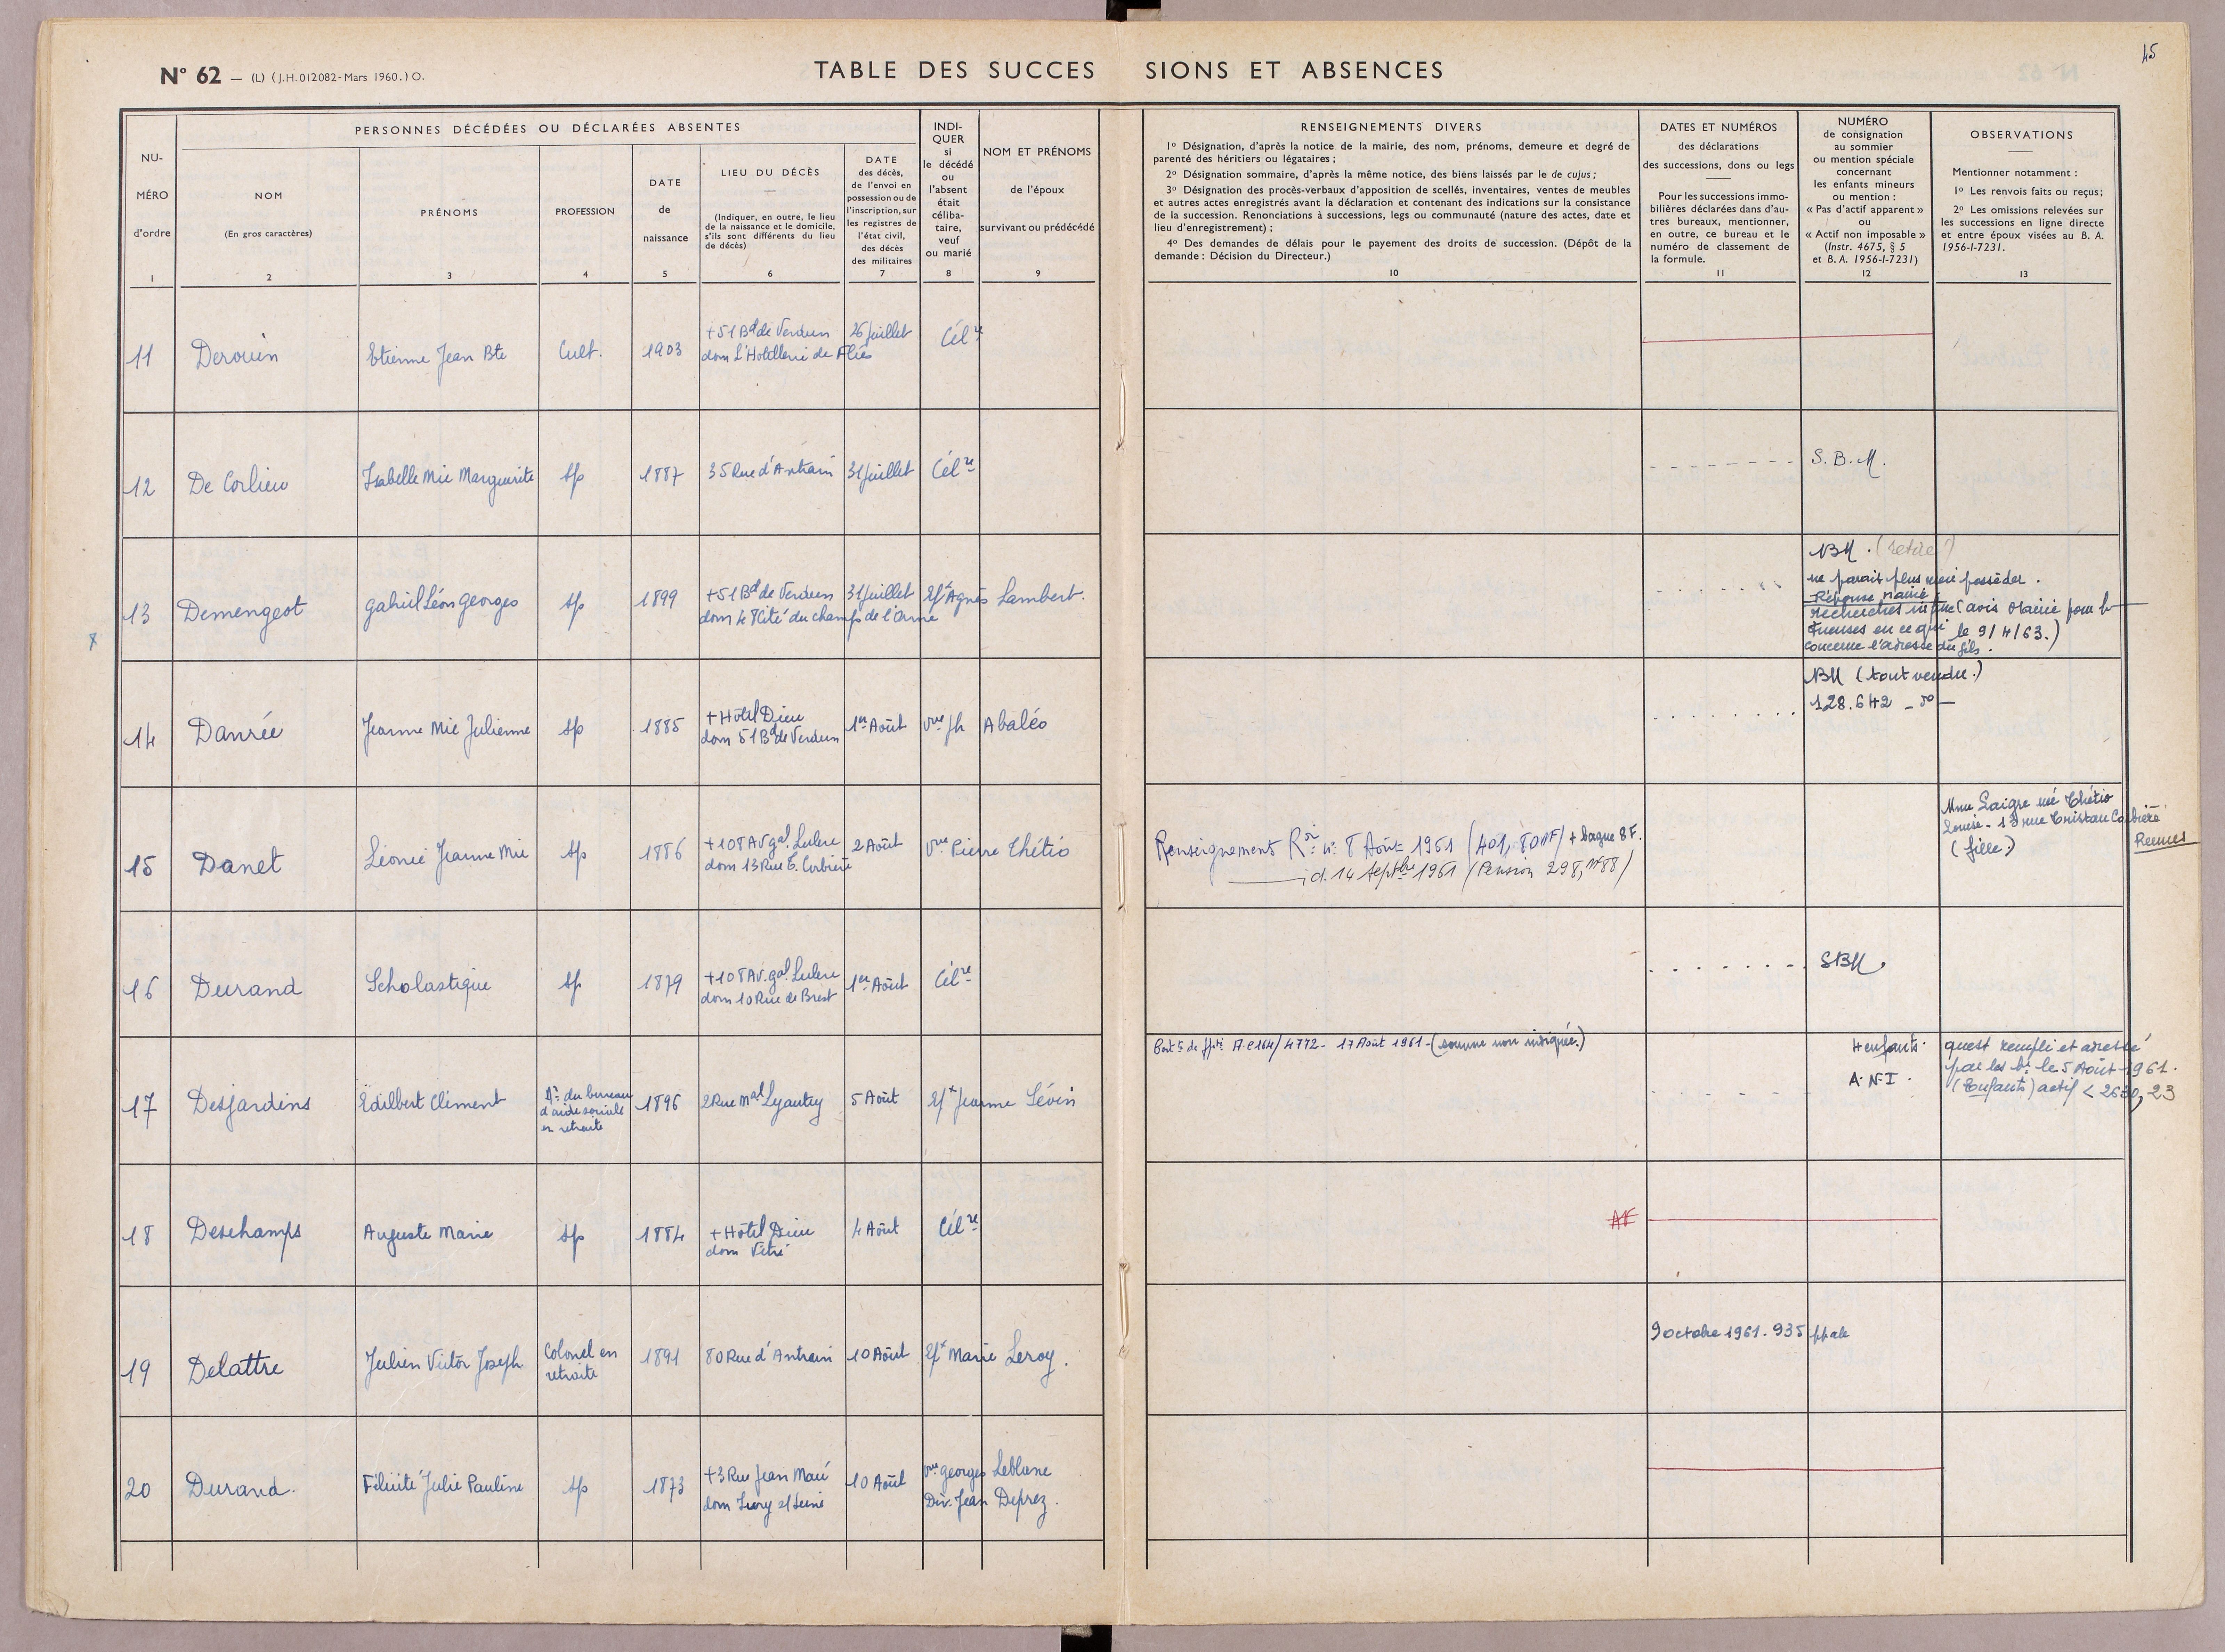 45
N° 62 — (L) (J.H.012082-Mars 1960.) O.
TABLE DES SUCCESSIONS ET ABSENCES
NU-
MÉRO
d'ordre
1
PERSONNES DÉCÉDÉES OU DÉCLARÉES ABSENTES
NOM
(En gros caractères)
2
PRÉNOMS
3
PROFESSION
4
DATE
de
naissance
5
LIEU DU DÉCÈS
(Indiquer, en outre, le lieu
de la naissance et le domicile,
s'ils sont différents du lieu
de décès)
6
DATE
des décès,
de l'envoi en
possession ou de
l'inscription, sur
les registres de
l'état civil,
des décès
des militaires
7
INDI-
QUER
si
le décédé
ou
l'absent
était
céliba-
taire,
veuf
ou marié
8
NOM ET PRÉNOMS
de l'époux
survivant ou prédécédé
9
RENSEIGNEMENTS DIVERS
1° Désignation, d'après la notice de la mairie, des nom, prénoms, demeure et degré de
parenté des héritiers ou légataires ;
2° Désignation sommaire, d'après la même notice, des biens laissés par le de cujus ;
3° Désignation des procès-verbaux d'apposition de scellés, inventaires, ventes de meubles
et autres actes enregistrés avant la déclaration et contenant des indications sur la consistance
de la succession. Renonciations à successions, legs ou communauté (nature des actes, date et
lieu d'enregistrement) ;
4° Des demandes de délais pour le payement des droits de succession. (Dépôt de la
demande : Décision du Directeur.)
10
DATES ET NUMÉROS
des déclarations
des successions, dons ou legs
Pour les successions immo-
bilières déclarées dans d'au-
tres bureaux, mentionner,
en outre, ce bureau et le
numéro de classement de
la formule.
11
NUMÉRO
de consignation
au sommier
ou mention spéciale
concernant
les enfants mineurs
ou mention :
« Pas d'actif apparent »
ou
« Actif non imposable »
(Instr. 4675, § 5
et B. A. 1956-I-7231)
12
OBSERVATIONS
Mentionner notamment :
1° Les renvois faits ou reçus;
2° Les omissions relevées sur
les successions en ligne directe
et entre époux visées au B. A.
1956-I-7231.
13
11 Derouin Etienne Jean Bte Cult. 1903 +51 Bd de Verdun 26 juillet Célre
dom L'Hotellerie de Flée
12 De Corlieu Isabelle Mie Marguerite sp 1887 35 Rue d'Antrain 31 juillet Célre S.B.M.
13 Demengeot Gabriel Léon Georges sp 1899 +51 Bd de Verdun 31 juillet Agnès Lambert.
dom 48 Cité du champ de l'orme
NBM.
ne parait plus rien posséder.
Réponse mairie
recherches (avis mairie
le 9/4/63.)
concerne l'adresse du fils.
14 Danrée Jeanne Mie Julienne sp 1885 +Hôtel Dieu 1er Août Vve Jh Abaléo
dom 51 Bd de Verdun
NBM (tout vendu.)
128.642
15 Danet Léonie Jeanne Mie sp 1886 +108 Av gal Leclerc 2 Août Vve Pierre Thétio
dom 13 Rue T. Corbière
Renseignement 8 Août 1961 (401,80 NF) + bague 8F.
id. 14 Septbre 1961 (Pension 298, NF88)
Mme Laigre née Thétio
Louise - 13 rue Tristan Corbière
(fille) Rennes
16 Durand Scholastique sp 1879 +108 Av. gal Leclerc 1er Août Célre SBM.
dom 10 Rue de Brest
17 Desjardins Edilbert Clément Dr du bureau
d'aide sociale
en retraite
1896 2 Rue Mal Lyautey 5 Août Jeanne Sévin
4772 - 17 Août 1961 - (somme non indiquée.)
4 enfants.
A.N.I.
quest rempli et adressé
par les le 5 Août 1961.
18 Deschamps Auguste Marie sp 1884 +Hôtel Dieu 4 Août Célre
dom Vitré
19 Delattre Julien Victor Joseph Colonel en
retraite
1891 80 Rue d'Antrain 10 Août Marie Leroy.
9 octobre 1961. 935 ppale
20 Durand. Félicité Julie Pauline sp 1873 +3 Rue Jean Macé 10 Août Vve Georges Leblanc
dom Ivry s/ Seine Div. Jean Deprez.